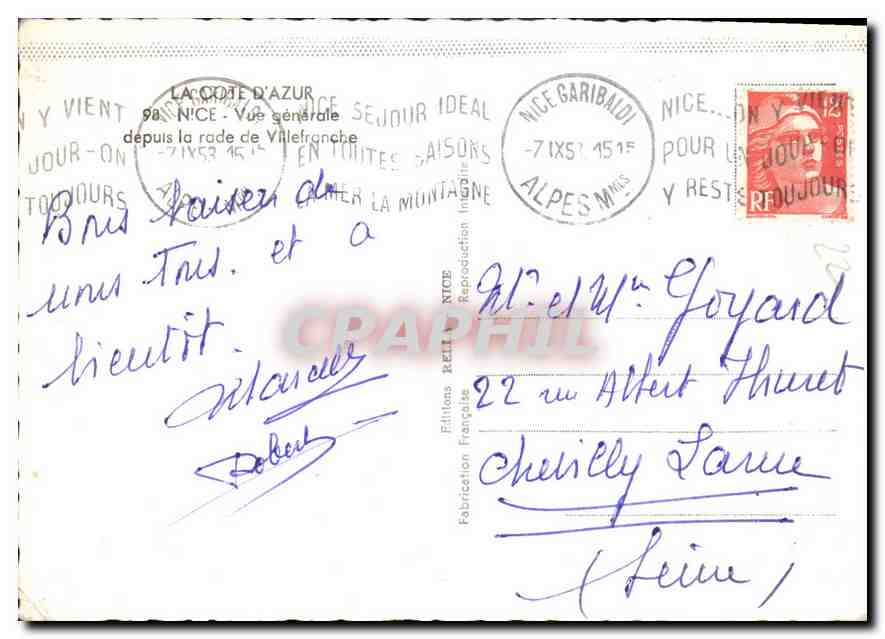 LA COTE D'AZUR
98. NICE - Vue générale
depuis la rade de Villefranche
N Y VIENT
JOUR-ON
TOUJOURS
NICE GARIBALDI
-7 IX53 1515
NICE SEJOUR IDEAL
EN TOUTES SAISONS
LA MER LA MONTAGNE
NICE GARIBALDI
-7 IX53 1515
ALPES Mmes
NICE...ON Y VIENT
POUR UN JOUR
Y RESTE TOUJOURS
12F
POSTES
RF
Bons baisers de
nous Tous. et a
bientôt.
Marcelle
Robert
Editions RELLA NICE
Fabrication Française Reproduction Interdite
CPAPHIL
Mr. et Mme Goyard
22 rue Albert Thuret
Chevilly Larue
(Seine)